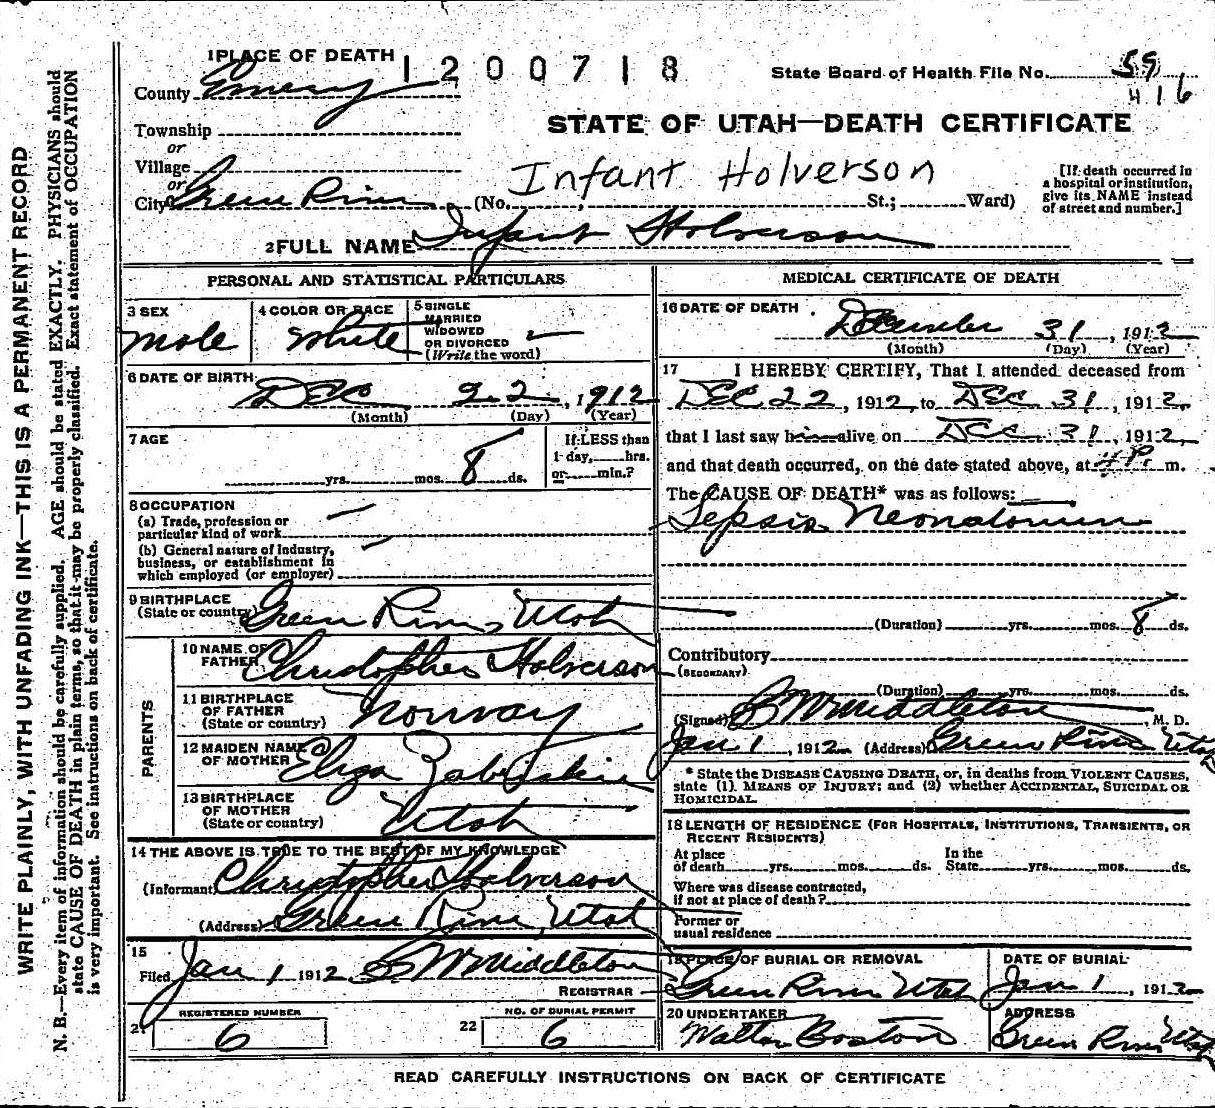 1 PLACE OF DEATH 1200718
State Board of Health File No. 59
416
County Emery
STATE OF UTAH—DEATH CERTIFICATE
Township
or
Village
or
City Green River (No. Infant Holverson St.; Ward)
[If death occurred in
a hospital or institution,
give its NAME instead
of street and number.]
2 FULL NAME Infant Holverson
PERSONAL AND STATISTICAL PARTICULARS
3 SEX
male
4 COLOR OR RACE
White
5 SINGLE
MARRIED
WIDOWED
OR DIVORCED
(Write the word)
6 DATE OF BIRTH
DEC 22, 1912
(Month) (Day) (Year)
7 AGE
yrs. mos. 8 ds.
If LESS than
1 day, hrs.
or min.?
8 OCCUPATION
(a) Trade, profession or
particular kind of work
(b) General nature of Industry,
business, or establishment in
which employed (or employer)
9 BIRTHPLACE
(State or country) Green River, Utah
PARENTS
10 NAME OF
FATHER Christopher Holverson
11 BIRTHPLACE
OF FATHER
(State or country) Norway
12 MAIDEN NAME
OF MOTHER Eliza Zabriskie
13 BIRTHPLACE
OF MOTHER
(State or country) Utah
14 THE ABOVE IS TRUE TO THE BEST OF MY KNOWLEDGE
(Informant) Christopher Holverson
(Address) Green River, Utah
15
Filed Jan 1 1912 Middleton
REGISTRAR
REGISTERED NUMBER
21 6
NO. OF BURIAL PERMIT
22 6
MEDICAL CERTIFICATE OF DEATH
16 DATE OF DEATH
December 31, 1912
(Month) (Day) (Year)
17 I HEREBY CERTIFY, That I attended deceased from
DEC 22, 1912, to DEC 31, 1912,
that I last saw him alive on DEC 31, 1912,
and that death occurred, on the date stated above, at 4 P. m.
The CAUSE OF DEATH* was as follows:
Sepsis Neonatorum
(Duration) yrs. mos. 8 ds.
Contributory
(SECONDARY)
(Duration) yrs. mos. ds.
(Signed) Middleton, M. D.
Jan 1, 1912 (Address) Green River Utah
* State the DISEASE CAUSING DEATH, or, in deaths from VIOLENT CAUSES,
state (1) MEANS OF INJURY; and (2) whether ACCIDENTAL, SUICIDAL OR
HOMICIDAL.
18 LENGTH OF RESIDENCE (FOR HOSPITALS, INSTITUTIONS, TRANSIENTS, OR
RECENT RESIDENTS)
At place
of death yrs. mos. ds.
In the
State yrs. mos. ds.
Where was disease contracted,
if not at place of death?
Former or
usual residence
19 PLACE OF BURIAL OR REMOVAL
Green River Utah
DATE OF BURIAL
Jan 1, 1913
20 UNDERTAKER
Walter Boston
ADDRESS
Green River Utah
READ CAREFULLY INSTRUCTIONS ON BACK OF CERTIFICATE
WRITE PLAINLY, WITH UNFADING INK—THIS IS A PERMANENT RECORD
N. B.—Every item of information should be carefully supplied. AGE should be stated EXACTLY. PHYSICIANS should
state CAUSE OF DEATH in plain terms, so that it may be properly classified. Exact statement of OCCUPATION
is very important. See instructions on back of certificate.